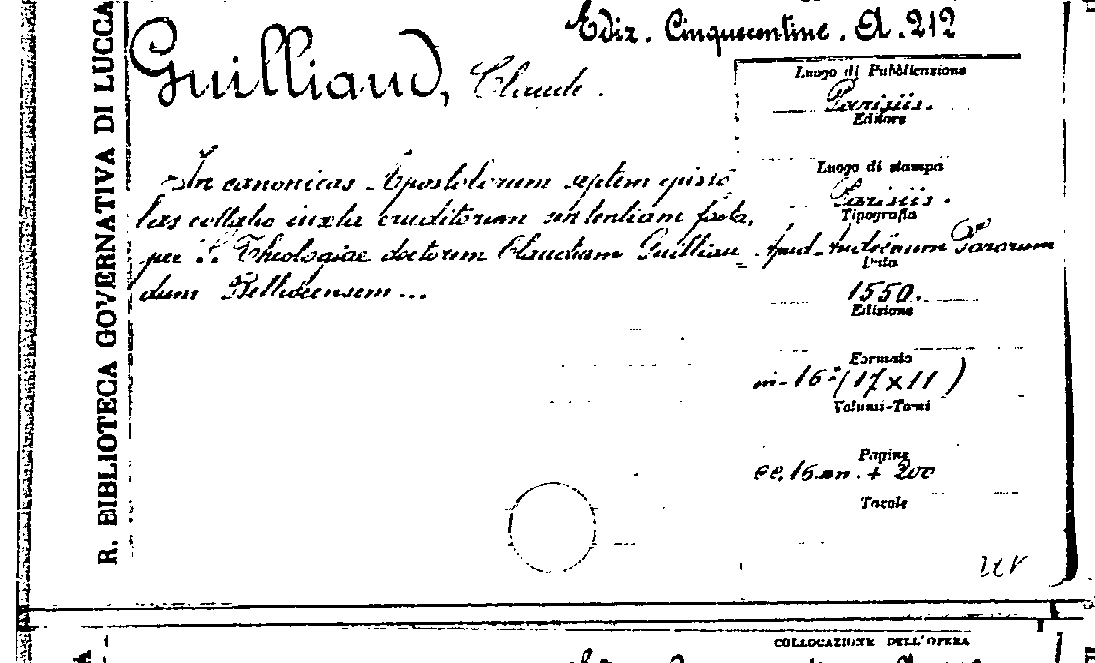 Ediz. Cinquecentine. A. 212
R. BIBLIOTECA GOVERNATIVA DI LUCCA
Guilliaud, Claude.
In canonicas Apostolorum septem episto
las collatio iuxta eruditorum sententiam facta,
per S. Theologiae doctorem Claudium Guilliau
dum Belliocensem...
Luogo di Pubblicazione
Parisiis.
Editore
Luogo di stampa
Parisiis.
Tipografia
Apud Audoënum Parvum
Data
1550.
Edizione
Formato
in-16° (17x11)
Volumi-Tomi
Pagine
cc. 16 nn. + 200
Tavole
COLLOCAZIONE DELL'OPERA